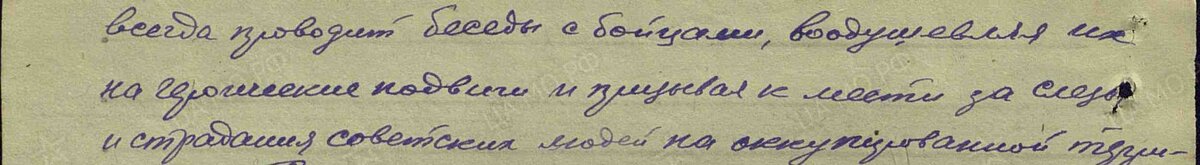 всегда проводит беседы с бойцами, воодушевляя их
на героические подвиги и призывая к мести за слезы
и страдания советских людей на оккупированной терри-